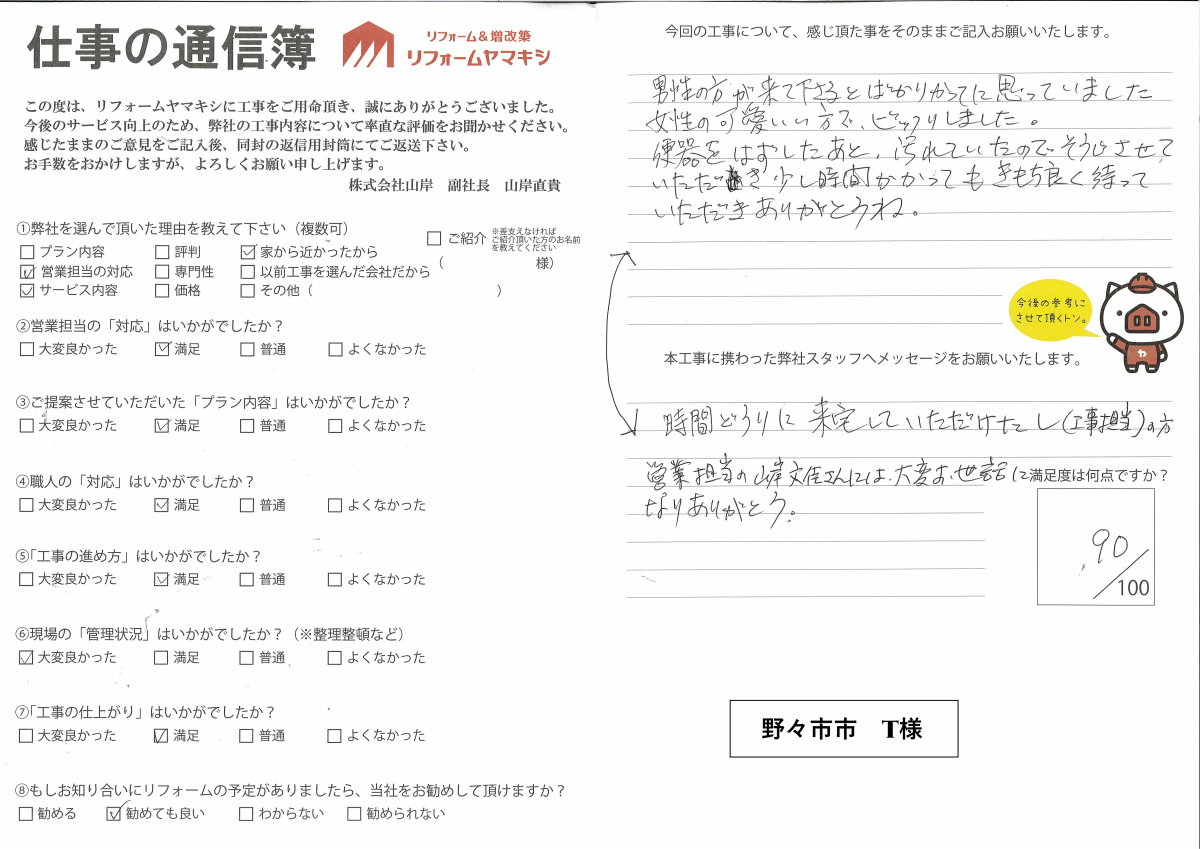 仕事の通信簿
リフォーム＆増改築
リフォームヤマキシ
この度は、リフォームヤマキシに工事をご用命頂き、誠にありがとうございました。
今後のサービス向上のため、弊社の工事内容について率直な評価をお聞かせください。
感じたままのご意見をご記入後、同封の返信用封筒にてご返送下さい。
お手数をおかけしますが、よろしくお願い申し上げます。
株式会社山岸　副社長　山岸直貴
①弊社を選んで頂いた理由を教えて下さい（複数可）
□プラン内容 □評判 ☑家から近かったから
□ご紹介 ※差支えなければ
ご紹介頂いた方のお名前
を教えてください
（　　　様）
☑営業担当の対応 □専門性 □以前工事を選んだ会社だから
☑サービス内容 □価格 □その他（　　　）
②営業担当の「対応」はいかがでしたか？
□大変良かった ☑満足 □普通 □よくなかった
③ご提案させていただいた「プラン内容」はいかがでしたか？
□大変良かった ☑満足 □普通 □よくなかった
④職人の「対応」はいかがでしたか？
□大変良かった ☑満足 □普通 □よくなかった
⑤「工事の進め方」はいかがでしたか？
□大変良かった ☑満足 □普通 □よくなかった
⑥現場の「管理状況」はいかがでしたか？（※整理整頓など）
☑大変良かった □満足 □普通 □よくなかった
⑦「工事の仕上がり」はいかがでしたか？
□大変良かった ☑満足 □普通 □よくなかった
⑧もしお知り合いにリフォームの予定がありましたら、当社をお勧めして頂けますか？
□勧める ☑勧めても良い □わからない □勧められない
今回の工事について、感じ頂た事をそのままご記入お願いいたします。
男性の方が来て下さるとばかりかってに思っていました
女性の可愛いい方で、ビックリしました。
便器をはずしたあと、汚れていたのでそうじさせて
いただき少し時間かかってもきもち良く待って
いただきありがとうね。
今後の参考に
させて頂くトン。
ヤ
本工事に携わった弊社スタッフへメッセージをお願いいたします。
時間どうりに来宅していただけたし（工事担当）の方
営業担当の山岸文佳さんには、大変お世話に
なりありがとう。
満足度は何点ですか？
90
/100
野々市市　T様